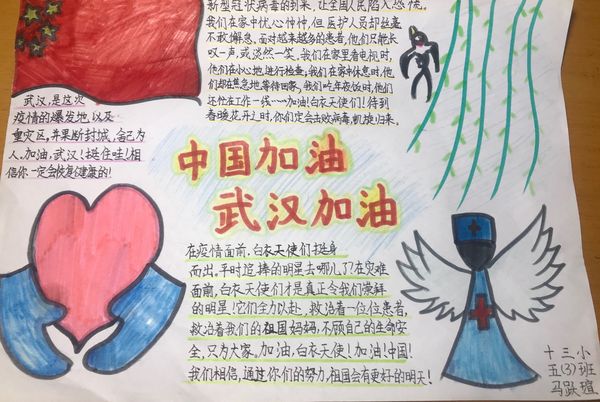 新型冠状病毒的到来,让全国人民陷入恐慌。
我们在家中忧心忡忡,但医护人员却丝毫
不敢懈怠。面对越来越多的患者,他们只能长
叹一声,或淡然一笑。我们在家里看电视时,
他们在小心地进行检查,我们在家中休息时,他
们却在焦急地等待回家,我们吃年夜饭时,他们
还忙在工作一线……加油!白衣天使们!待到
春暖花开之时,你们定会击败病毒,凯旋归来。
武汉,是这次
疫情的爆发地,以及
重灾区,并果断封城,舍己为
人。加油,武汉!挺住哇!相
信你一定会恢复健康的!
中国加油
武汉加油
在疫情面前,白衣天使们挺身
而出,平时追捧的明星去哪儿了?在灾难
面前,白衣天使们才是真正令我们崇拜
的明星!它们全力以赴,救治着一位位患者,
救治着我们的祖国妈妈,不顾自己的生命安
全,只为大家。加油,白衣天使!加油!中国!
我们相信,通过你们的努力,祖国会有更好的明天!
十三小
五(3)班
马跃瑄